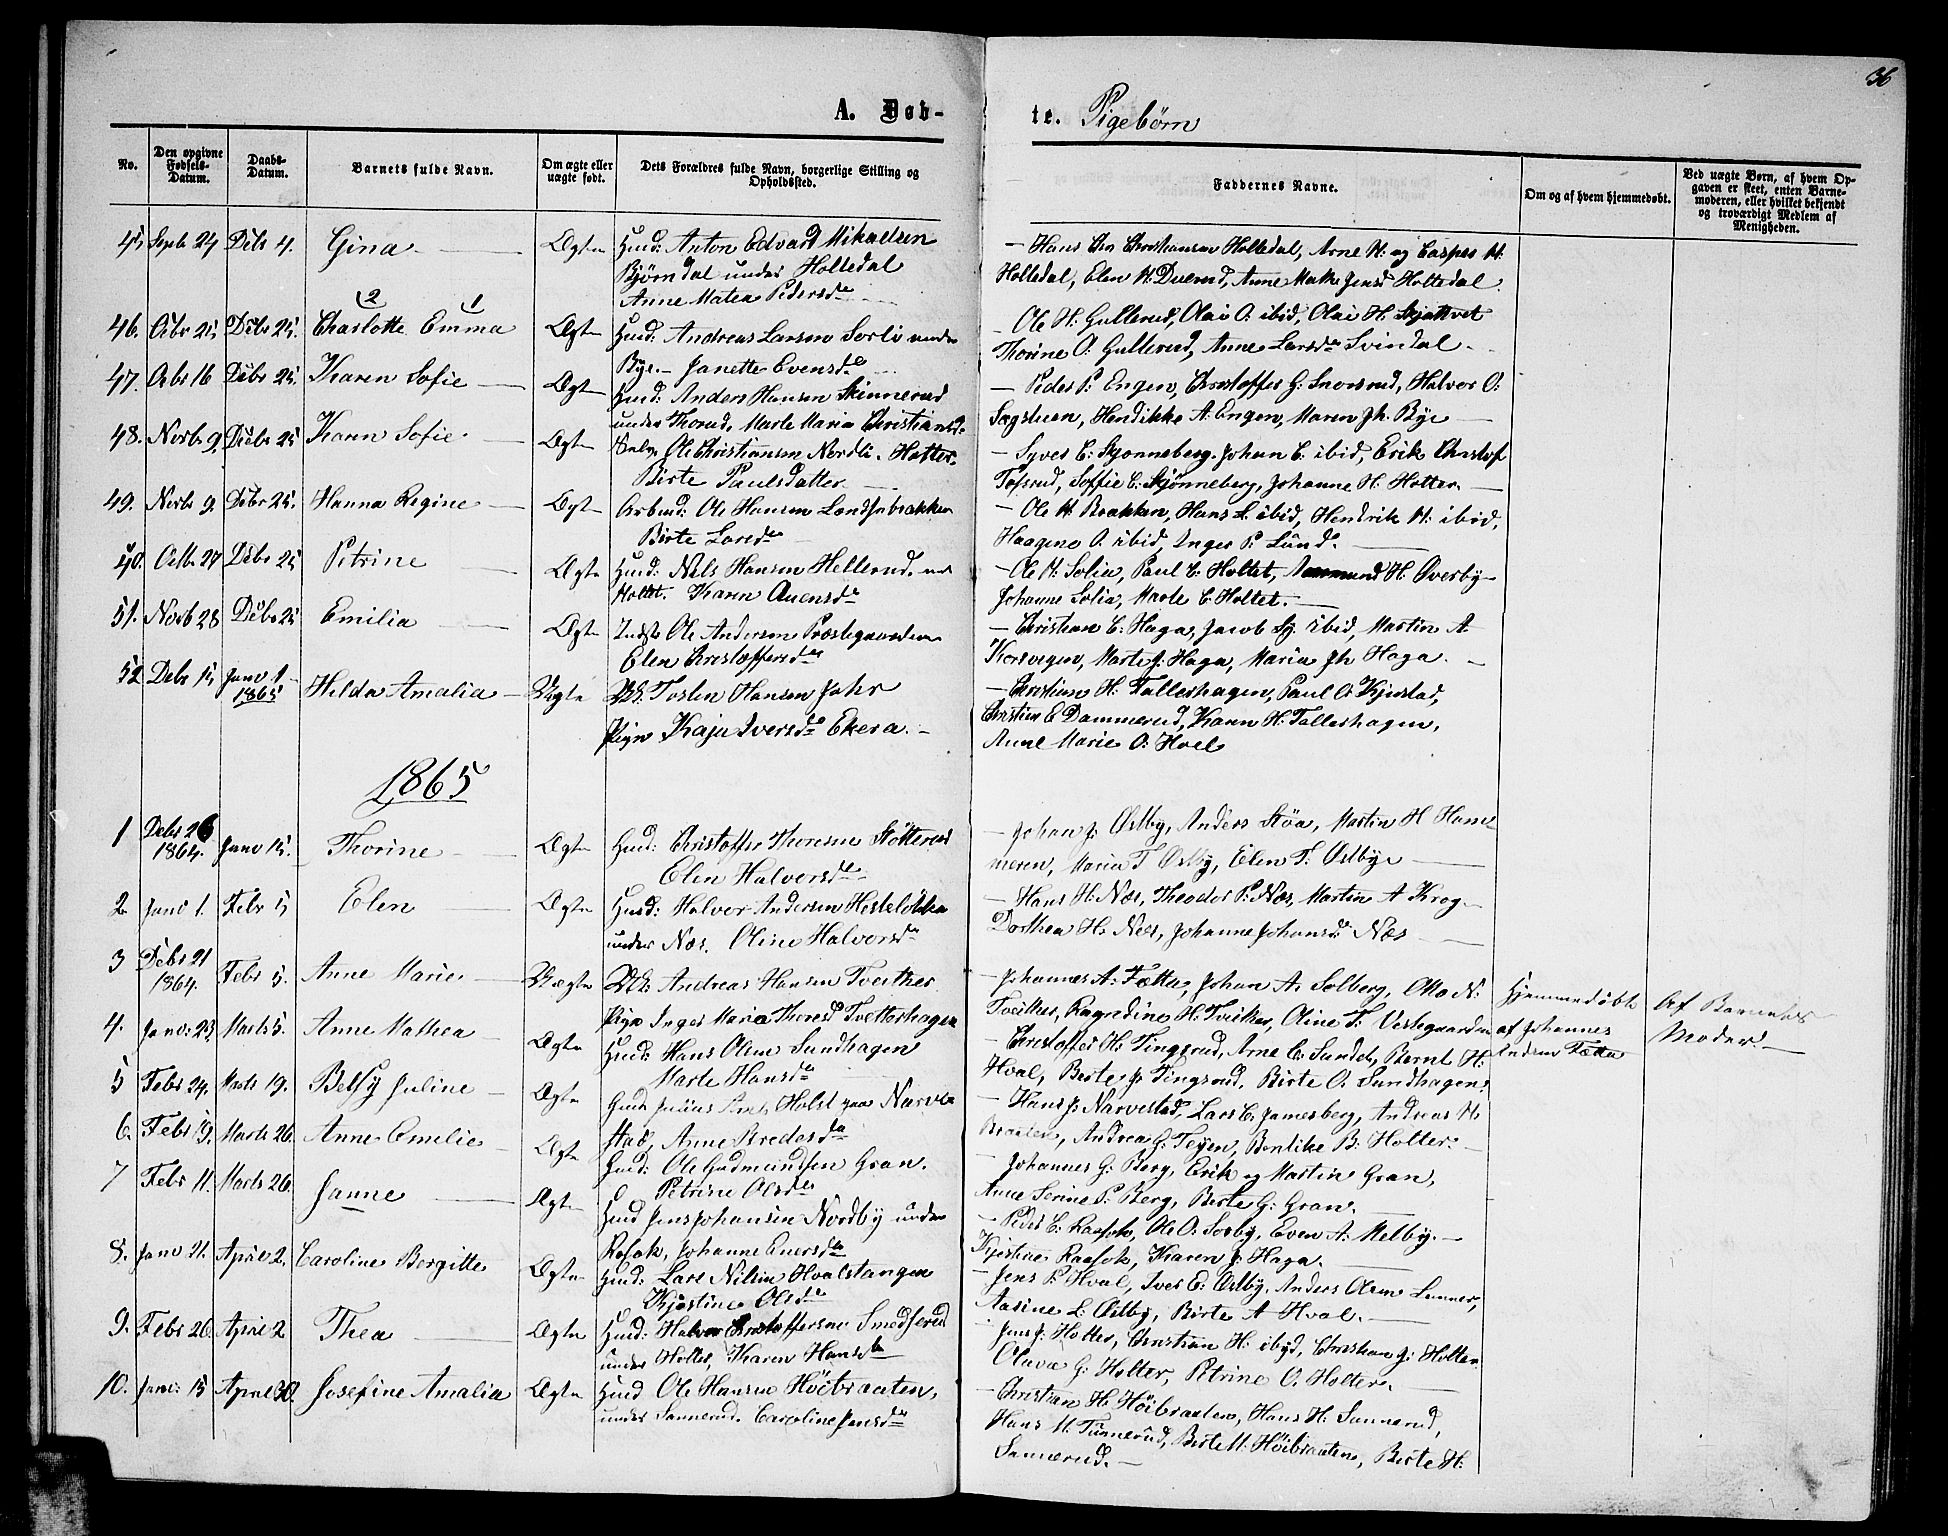 36
A. Døb-
te. Pigebørn
No.
Den opgivne Fødsels-Datum.
Daabs-Datum.
Barnets fulde Navn.
Om ægte eller uægte født.
Dets Forældres fulde Navn, borgerlige Stilling og Opholdssted.
Faddernes Navne.
Om og af hvem hjemmedøbt.
Ved uægte Børn, af hvem Opgaven er skeet, enten Barnemoderen, eller hvilket bekjendt og troværdigt Medlem af Menigheden.
45 Septb 24 Dcb 4. Gina Ægte Husd: Anton Edvard Mikaelsen
Bjørndal under Holtedal
Anne Matea Pedersd
Hans Chr Christiansen Holtedal, Arne H: og Casper H:
Holtedal, Elen H: Duerud, Anne Mathe Jensd Holtedal
46. Octbr 25 Decbr 25. Charlotte 2 Emma 1 Ægte Husd: Andreas Larsen Sorli under
Bye. Janette Evensd
Ole H: Gullerud, Olai O. ibid, Olai H. Skjatvet
Thorine O: Gullerud, Anne Larsd Svindal
47. Octbr 16 Decbr 25. Karen Sofie Ægte Husd: Anders Hansen Skinnerud
under Thorud, Marte Maria Christiansd
Peder P: Engen, Christoffer G: Snorsrud, Halvor O:
Sagstuen, Hendikke A: Engen, Maren Jh. Bye
48. Novbr 9 Decbr 25 Karen Sofie Ægte Ole Christiansen Nordli. Holter.
Birte Paulsdatter
Syver C: Skjonneberg. Johan C. ibid, Erik Christof
Tofsrud, Soffie C: Skjönneberg, Johanne H. Holter.
49. Novbr 9. Decbr 25. Hanna Regine Ægte Arbeid: Ole Hansen Landsebrakken
Birte Larsd
Ole H: Brakken, Hans L. ibid, Hendrik H: ibid,
Haagine O. ibid, Inger P. Lund.
50. Octb 27 Decbr 25 Petrine Ægte Husd: Nels Hansen Hellerud. un
Holtet. Karen Auensd
Ole H: Solia, Paul C: Holtet, H: Överby
Johanne Solia, Marte C: Holtet.
51. Novb 28 Decbr 25 Emilia Ægte Indst. Ole Andersen Præstegaarden
Elen Christoffersd
Christian C: Haga, Jacob Sy. ibid, Martin A
Korsvegen, Marte J: Haga, Maria Jh Haga.
52 Decbr 15 Janv 1 1865 Hilda Amalia Uægte UK. Tosten Hansen Jahr
Pign Kaja Iversd Ekera.
Christian H: Tallershagen, Paul O: Kjerstad,
Christian E Dammerud, Karen H: Tallershagen,
Anne Marie O: Hoel
1865
1 Debr 26 1864. Janv 15. Thorine Ægte Husd: Christoffer Thoresen Støtterud
Elen Halvorsd
Johan J: Østby, Anders Støa, Martin H Ham
meren, Maria T Østby, Elen T: Østbye
2 Janv 1. Febr 5 Elen Ægte Husd: Halvor Andersen Hesteløkka
under Næs. Oline Halvorsd
Hans H: Næs, Theodor P: Næs, Martin A Krog
Dorthea H. Næs, Johanne Johansd: Næs
3 Debr 21 1864. Febr 5. Anne Marie Uægte UK: Andreas Hansen Tveither
Pign Inger Maria Thoresd Tvetterhagen
Johannes A: Fætta, Johan A: Solberg, Otto N:
Tveither, Ragndine H: Tveither, Oline T: Vestgaarden
Hjemmedøbt af Johannes Anders: Fætta
Af Barnets Moder.
4. Janv: 23, Marts 5. Anne Mathea Ægte Husd: Hans Olsen Sundhagen
Marte Hansd
Christoffer H: Tingsrud, Arne C: Sundet, Bernt H:
Hval, Berte J: Tingsrud. Birte O. Sundhagen.
5 Febr 24. Marts 19. Betsy Juline Ægte Gmd Julius Holst paa Narve
stad, Anne Bredesd
Hans J: Narvestad, Lars C. Jamesberg, Andreas H:
Braaten, Andrea G: Teyen, Benlike B: Holter.
6. Febr 19. Marts 26. Anne Emelie Ægte Husd: Ole Gudmundsen Gran.
Petrine Olsd
Johannes G: Berg, Erik og Martin Gran,
Anne Serine P: Berg, Berte G: Gran.
7 Febr 11. Marts 26. Janne Ægte Husd Jens Johansen Nordby under
Rosok, Johanne Enersd
Peder C: Raasok, Ole O: Sorby, Even A: Melby.
Kjerstine Raasok, Karen J: Haga.
8. Janv 21. April 2. Caroline Bergitte Ægte Husd: Lars Nilsen Hvalstangen
Kjerstine Olsd
Jens P: Hval, Iver E: Østby. Anders Olsen Lunner,
Aasine L: Østby, Birte A Hval.
9. Febr 26. April 2 Thea Ægte Husd: Halvor Christoffersen Smedserud
under Holter, Karen Hansd
Jens J: Holter, Christian H: ibyd, Christian G: Holter
Olava G: Holter, Petrine O. Holter.
10. Janv: 15 April 30. Josefine Amalia Ægte Husd Ole Hansen Höibraaten,
under Sannerud. Caroline Jensd
Christian H: Höibraaten, Hans H: Sannerud,
Hans M: Tunnerud, Berte M: Höibraaten, Birte H:
Sannerud.